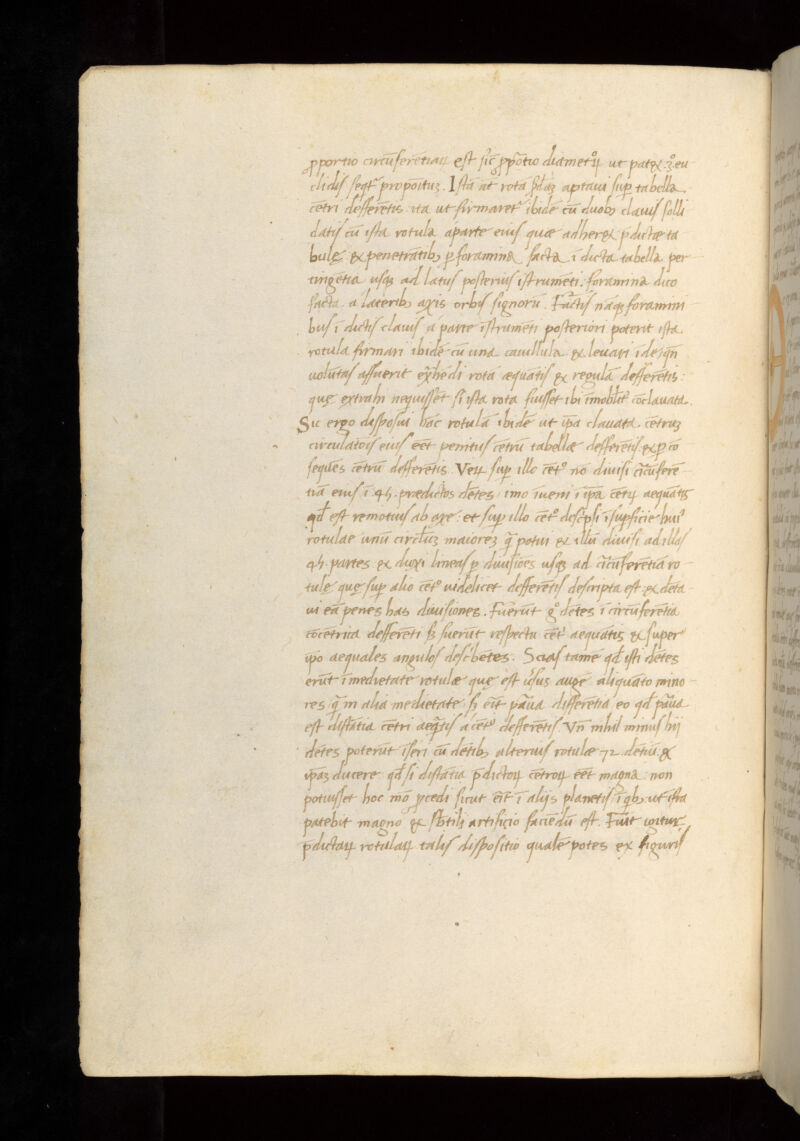 ꝓportio circūferētiaꝝ est sic ꝓpōtio diametroꝝ ut patꝫ ex eu
clidis seqt propositū. Istā at rotā p̄dcāꝫ aptaui sup tabellā
cētri defferētis ita ut firmaret ibidē cū duobꝫ clauis solli
datis cū ista rotula aparte eius quae adheret p̄dictae ta
bule & penetrātibꝫ p foramina facta ī dicta tabella per
tingētia usqꝫ ad latus posterius istrumēti. foramina dico
facta a lateribꝫ axis orbis signorū. Factis nāqꝫ foramini
bus ī dictis clauis a parte istrumēti posteriori poterit ista
rotula firmari ibidē cū una cauillula & leuari ideꝫ qn
uolūtas affuerit exhēdi rotā aequātis & regulā defferētis:
que extrahi nequisset si ista rota fuisset ibi īmobilit cōclauata.
Sic ergo disposui hāc rotulā ibidē ut ipa clauata cētruꝫ
circulatiōis eius eēt penitus cētrū tabellae defferētis & p cō
sequēs cētrū defferētis. Veꝝ sup illo cēto nō diuisi circūferē
tiā eius ī 45 praedictos dētes imo īueni ī ipā cētꝝ aequātis
qd est remotius ab axe: et sup illo cēto descpsi ī supficie hui⁹
rotulae unū circuluꝫ maioreꝫ q̄ potui & illū diuisi ad illas
45 partes & duxi lineas p diuisiōes usqꝫ ad circūferētiā ro
tule que sup alio cēto uidelicet defferētis descripta est & dēta
ui eā penes has diuisiones. Fuerūt go dētes ī circūferētia
cōcētrica defferēti sꝫ fuerūt respectu cēti aequātis & super
ipo aequales angulos describētes. Scias tamē qd isti dētes
erūt ī medietate rotulae que est uersus augē aliquāto mino
res q̄ in alia medietate sꝫ eīt parua differētia eo qd parua
est distātia cētri aequātis a cēto defferētis. Vn nihil minus hij
dētes poterūt īseri cū dētibꝫ alterius rotulae 72 dētiū &
ipaꝫ ducere qd si distātia p̄dictoꝝ cētroꝝ eēt magna non
potuisset hoc mō ꝓcedi sicut eīt ī alijs planetis ī qbꝫ ut ifra
patebit magno & sbtili artificio faciēdū est. Fuit igitur
p̄dictaꝝ rotulaꝝ talis dispositio qualē potes ex figuris